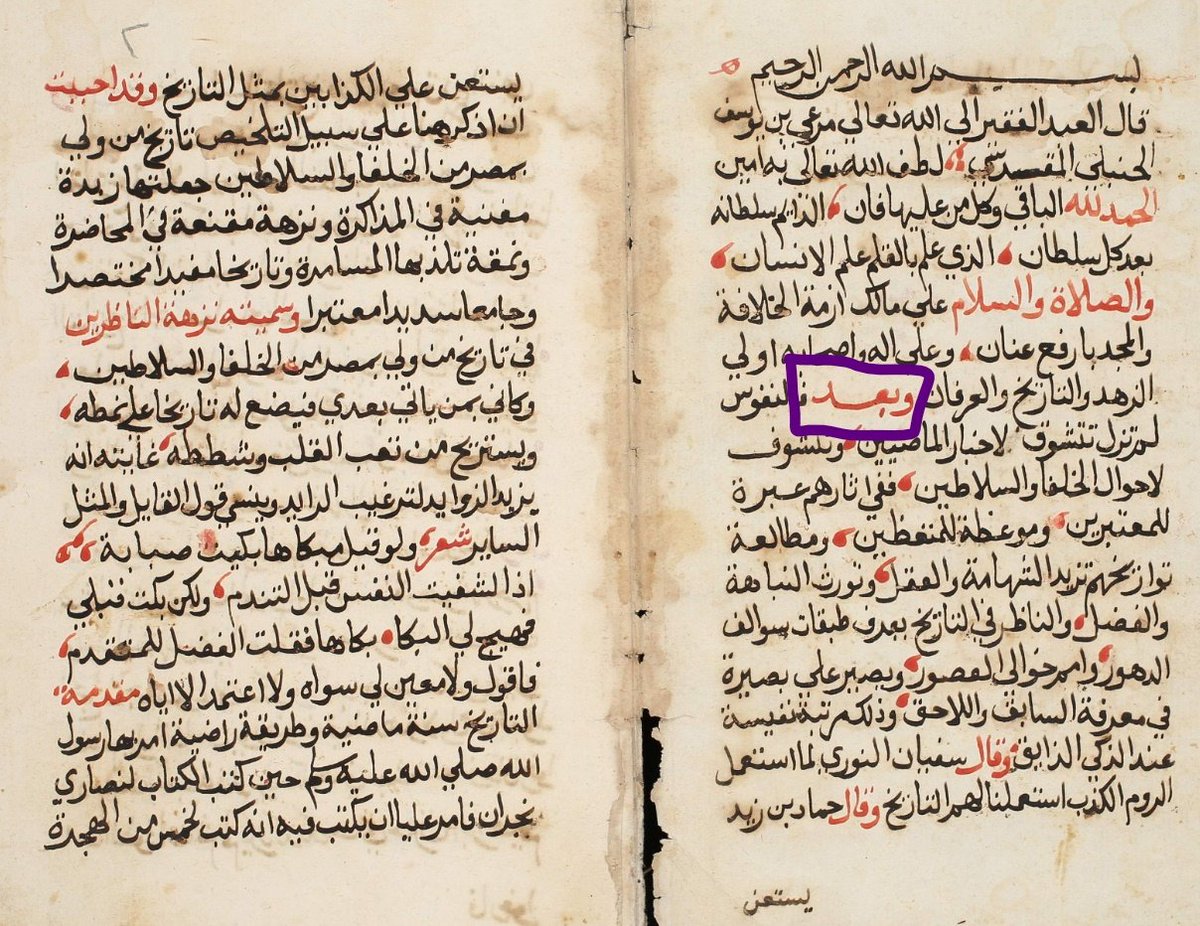 بسم الله الرحمن الرحيم
قال العبد الفقير الي الله تعالي مرعي بن يوسف
الحنبلي المقدسي لطف الله تعالى به امين
الحمد لله الباقي وكل من عليها فان الدايم سلطانه
بعد كل سلطان الذي علم بالقلم علم الانسان
والصلاة والسلام علي مالك ازمة الخلافة
والمجد بارفع عنان وعلى اله واصحابه اولي
الزهد والتاريخ والعرفان وبعد فالنفوس
لم تزل تتشوق لاخبار الماضيين وتتشوف
لاحوال الخلفا والسلاطين ففي اثارهم عبرة
للمعتبرين وموعظة للمتعظين ومطالعة
تواريخهم تزيد الشهامة والعقل وتورث النباهة
والفضل والناظر في التاريخ يعرف طبقات سوالف
الدهور وامم خوالي العصور ويصير علي بصيرة
في معرفة السابق واللاحق وذلك مرتبة نفيسة
عند الذكي الذايق وقال سفيان الثوري لما استعمل
الروم الكذب استعملنا لهم التاريخ وقال حماد بن زيد
يستعن
٢
يستعن علي الكذابين بمثل التاريخ وقد احببت
ان اذكر هنا علي سبيل التلخيص تاريخ من ولي
بمصر من الخلفا والسلاطين جعلتها زبدة
مغنية في المذاكرة ونزهة مقنعة في المحاضرة
وتلذ بها المسامرة وتاريخا مفيدا مختصرا
وجامعا سديدا معتبرا وسميته نزهة الناظرين
في تاريخ من ولي بمصر من الخلفا والسلاطين
وكاني بمن ياتي بعدي فيضع له تاريخا علي نمطه
ويستريح من تعب القلب وشططه غايته انه
يزيد الزوايد لترغيب الرايد وينسي قول القايل والمثل
الساير شعر ولو قبل مبكاها بكيت صبابة
اذا لشفيت النفس قبل التندم ولكن بكت قبلي
فهيج لي البكا بكاها فقلت الفضل للمتقدم
فاقول ولا معين لي سواه ولا اعتمد الا اياه مقدمة
التاريخ سنة ماضية وطريقة راضية امر بها رسول
الله صلي الله عليه وسلم حين كتب الكتاب لنصاري
نجران فامر عليا ان يكتب فيه انه كتب لخمس من الهجرة